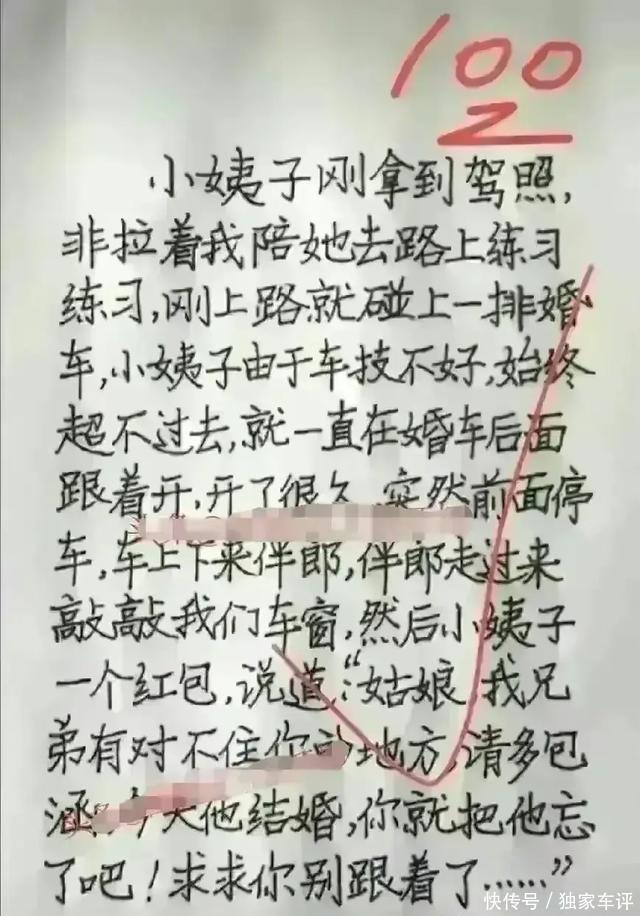 100
小姨子刚拿到驾照,
非拉着我陪她去路上练习
练习,刚上路就碰上一排婚
车,小姨子由于车技不好,始终
超不过去,就一直在婚车后面
跟着开,开了很久,突然前面停
车,车上下来伴郎,伴郎走过来
敲敲我们车窗,然后小姨子
一个红包,说道:“姑娘 我兄
弟有对不住你的地方,请多包
涵,今天他结婚,你就把他忘
了吧!求求你别跟着了……”
快传号/独家车评